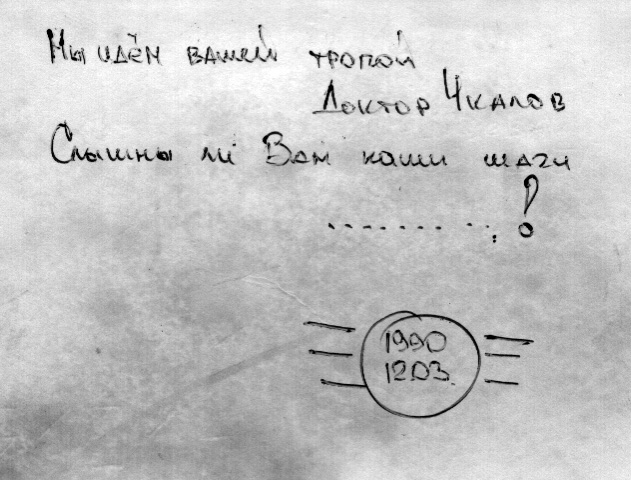 Мы идём вашей тропой
Доктор Чкалов
Слышны ли Вам наши шаги
.......... !
1990
12.03.